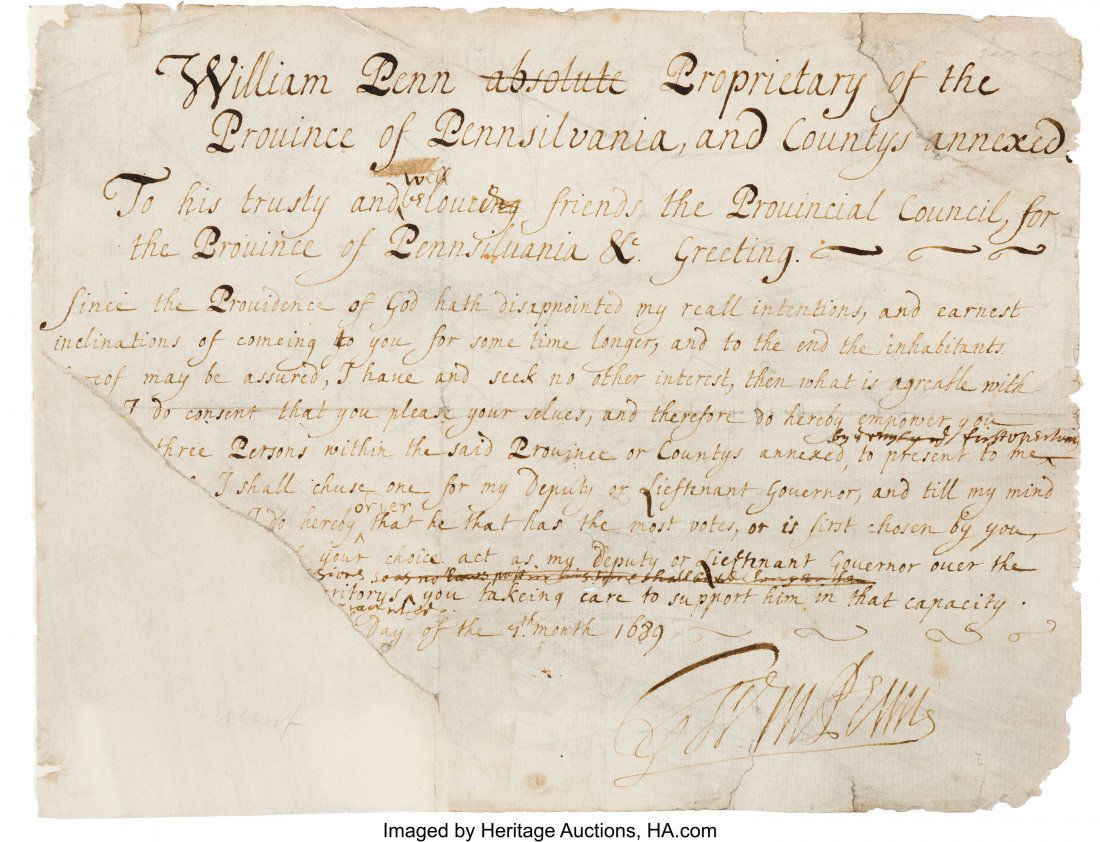 William Penn absolute Proprietary of the
Province of Pennsilvania, and Countys annexed.
well
To his trusty and beloved friends the Provincial Council, for
the Province of Pennsilvania &c. Greeting.
Since the Providence of God hath disappointed my reall intentions, and earnest
inclinations of comeing to you for some time longer, and to the end the inhabitants
of may be assured, I have and seek no other interest, then what is agreable with
I do consent that you please your selves, and therefore do hereby empower you
three Persons within the said Province or Countys annexed, to present to me
I shall chuse one for my Deputy or Lieftenant Governor, and till my mind
order
I do hereby that he that has the most votes, or is first chosen by you,
your choice act as my Deputy or Lieftenant Governor over the
you takeing care to support him in that capacity.
Day of the month 1689
Wm Penn
Imaged by Heritage Auctions, HA.com